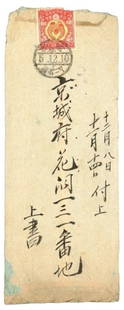 十二月八日
付上
京城府花洞一三一番地
上書
5.12.10